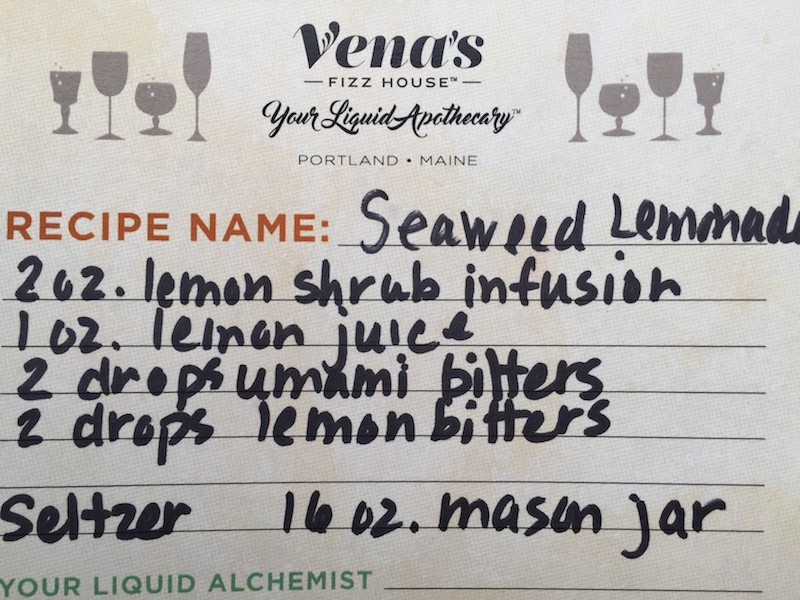 Vena's
FIZZ HOUSE™
Your Liquid Apothecary™
PORTLAND • MAINE
RECIPE NAME: Seaweed Lemonade
2 oz. lemon shrub infusion
1 oz. lemon juice
2 drops umami bitters
2 drops lemon bitters
Seltzer 16 oz. mason jar
YOUR LIQUID ALCHEMIST